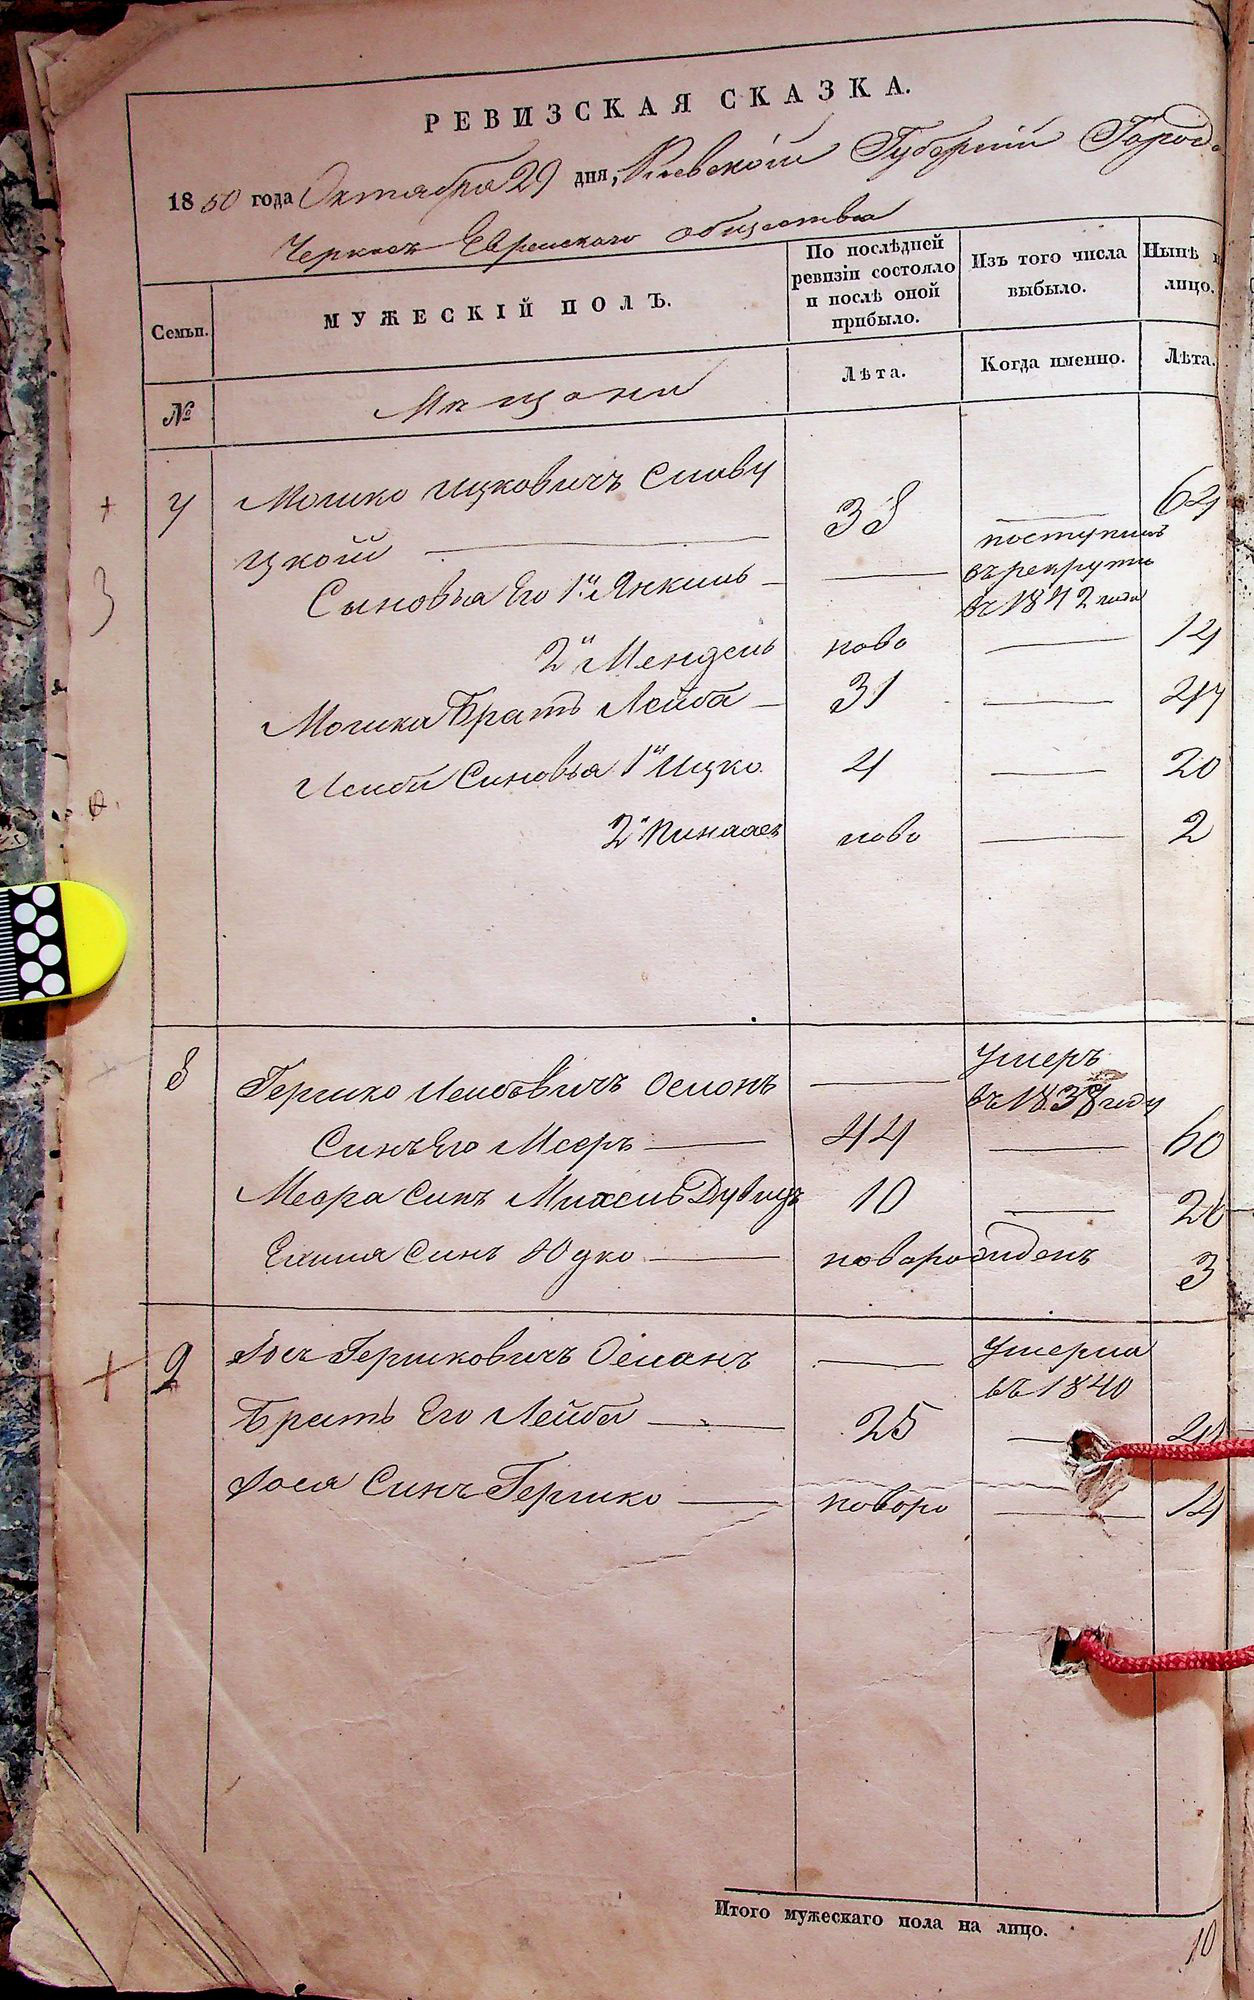 РЕВИЗСКАЯ СКАЗКА.
1850 года Октября 29 дня, Киевской Губернии Города
Черкас Еврейского общества
Семьи.
МУЖЕСКІЙ ПОЛЪ.
По послѣдней ревизіи состояло и послѣ оной прибыло.
Изъ того числа выбыло.
Нынѣ
лицо.
№
Мещани
Лѣта.
Когда именно.
Лѣта.
7 Мошко Ицковичъ Славу
цкой 38 64
Сыновья Его 1й Янкель поступилъ въ рекруты въ 1842 года
2й Мендель ново 14
Мошка Братъ Лейба 31 47
Лейби Синовья 1й Ицко 4 20
2й Пинхасъ ново 2
8 Гершко Лейбовичъ Осмонъ Умеръ въ 1838 году
Синъ Его Мееръ 44 60
Меора Синъ Михель Дувидъ 10 26
Синъ Юдко новорожденъ 3
9 Гершковичъ Османъ Умерла въ 1840
Братъ Его Лейба 25
Синъ Гершко новоро 14
Итого мужескаго пола на лицо.
10